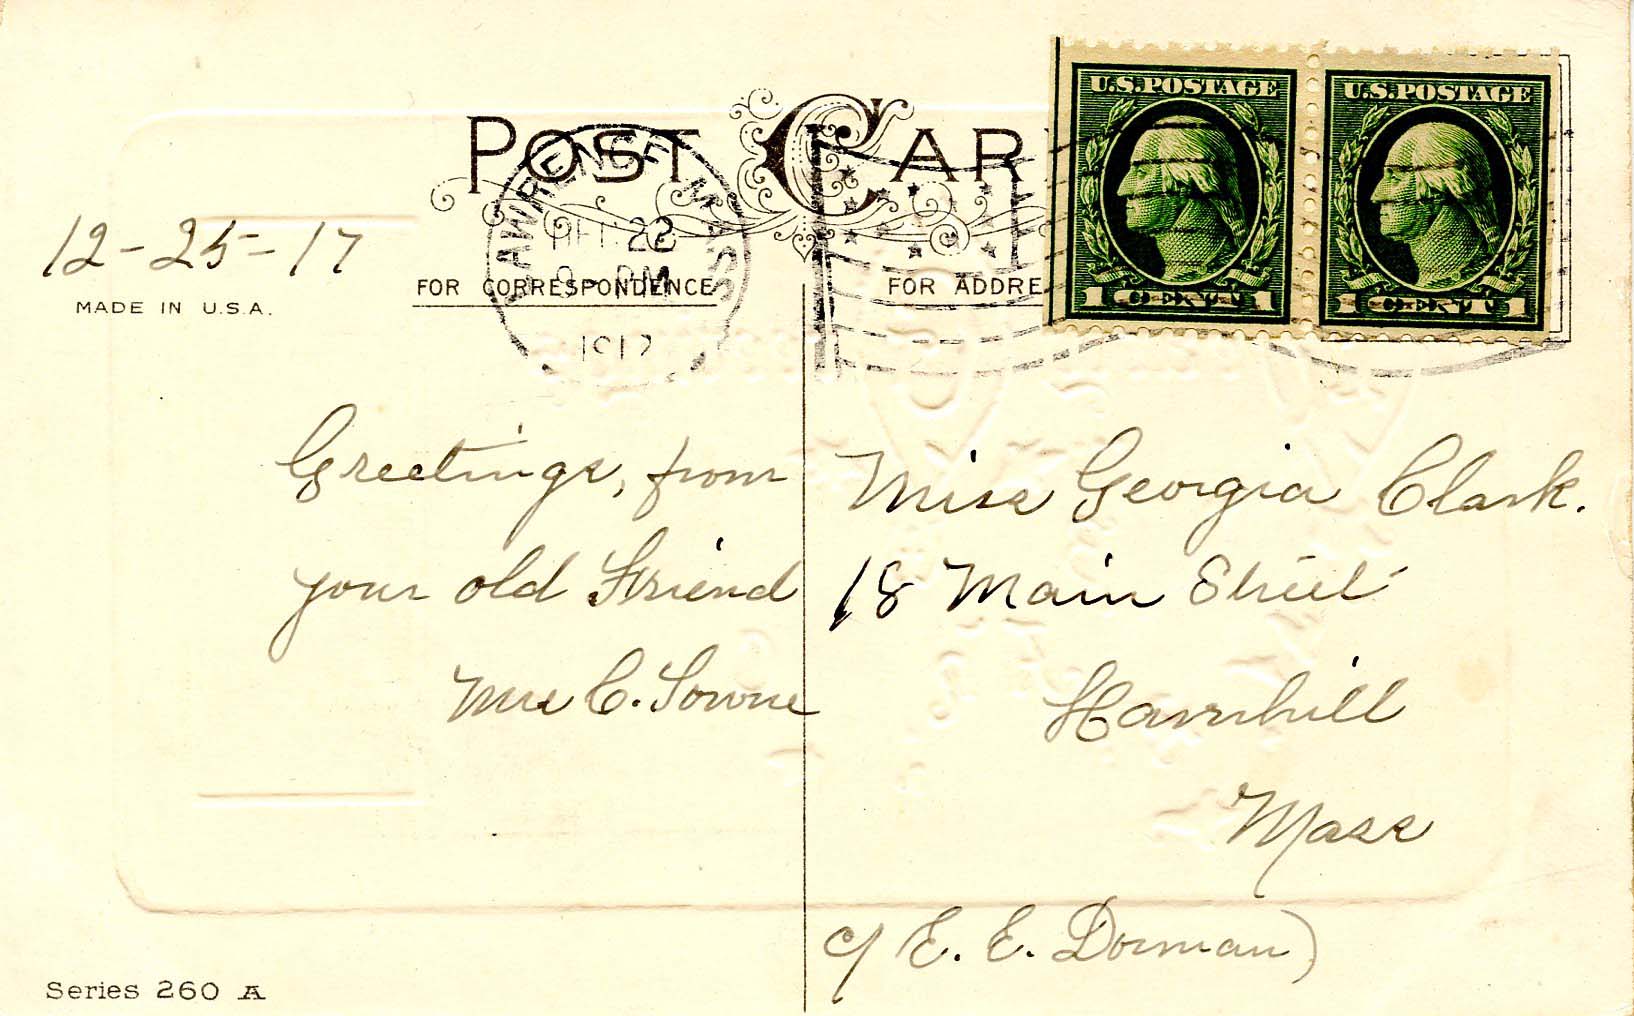 POST CAR
U.S.POSTAGE U.S.POSTAGE
1 CENT 1 1 CENT 1
LAWRENCE MASS
22
PM
1917
12-25-17
MADE IN U.S.A.
FOR CORRESPONDENCE
FOR ADDRE
Greetings, from
your old Friend
Mrs C. Towne
Miss Georgia Clark.
18 Main Street
Haverhill
Mass
c/ E. E. Dorman)
Series 260 A